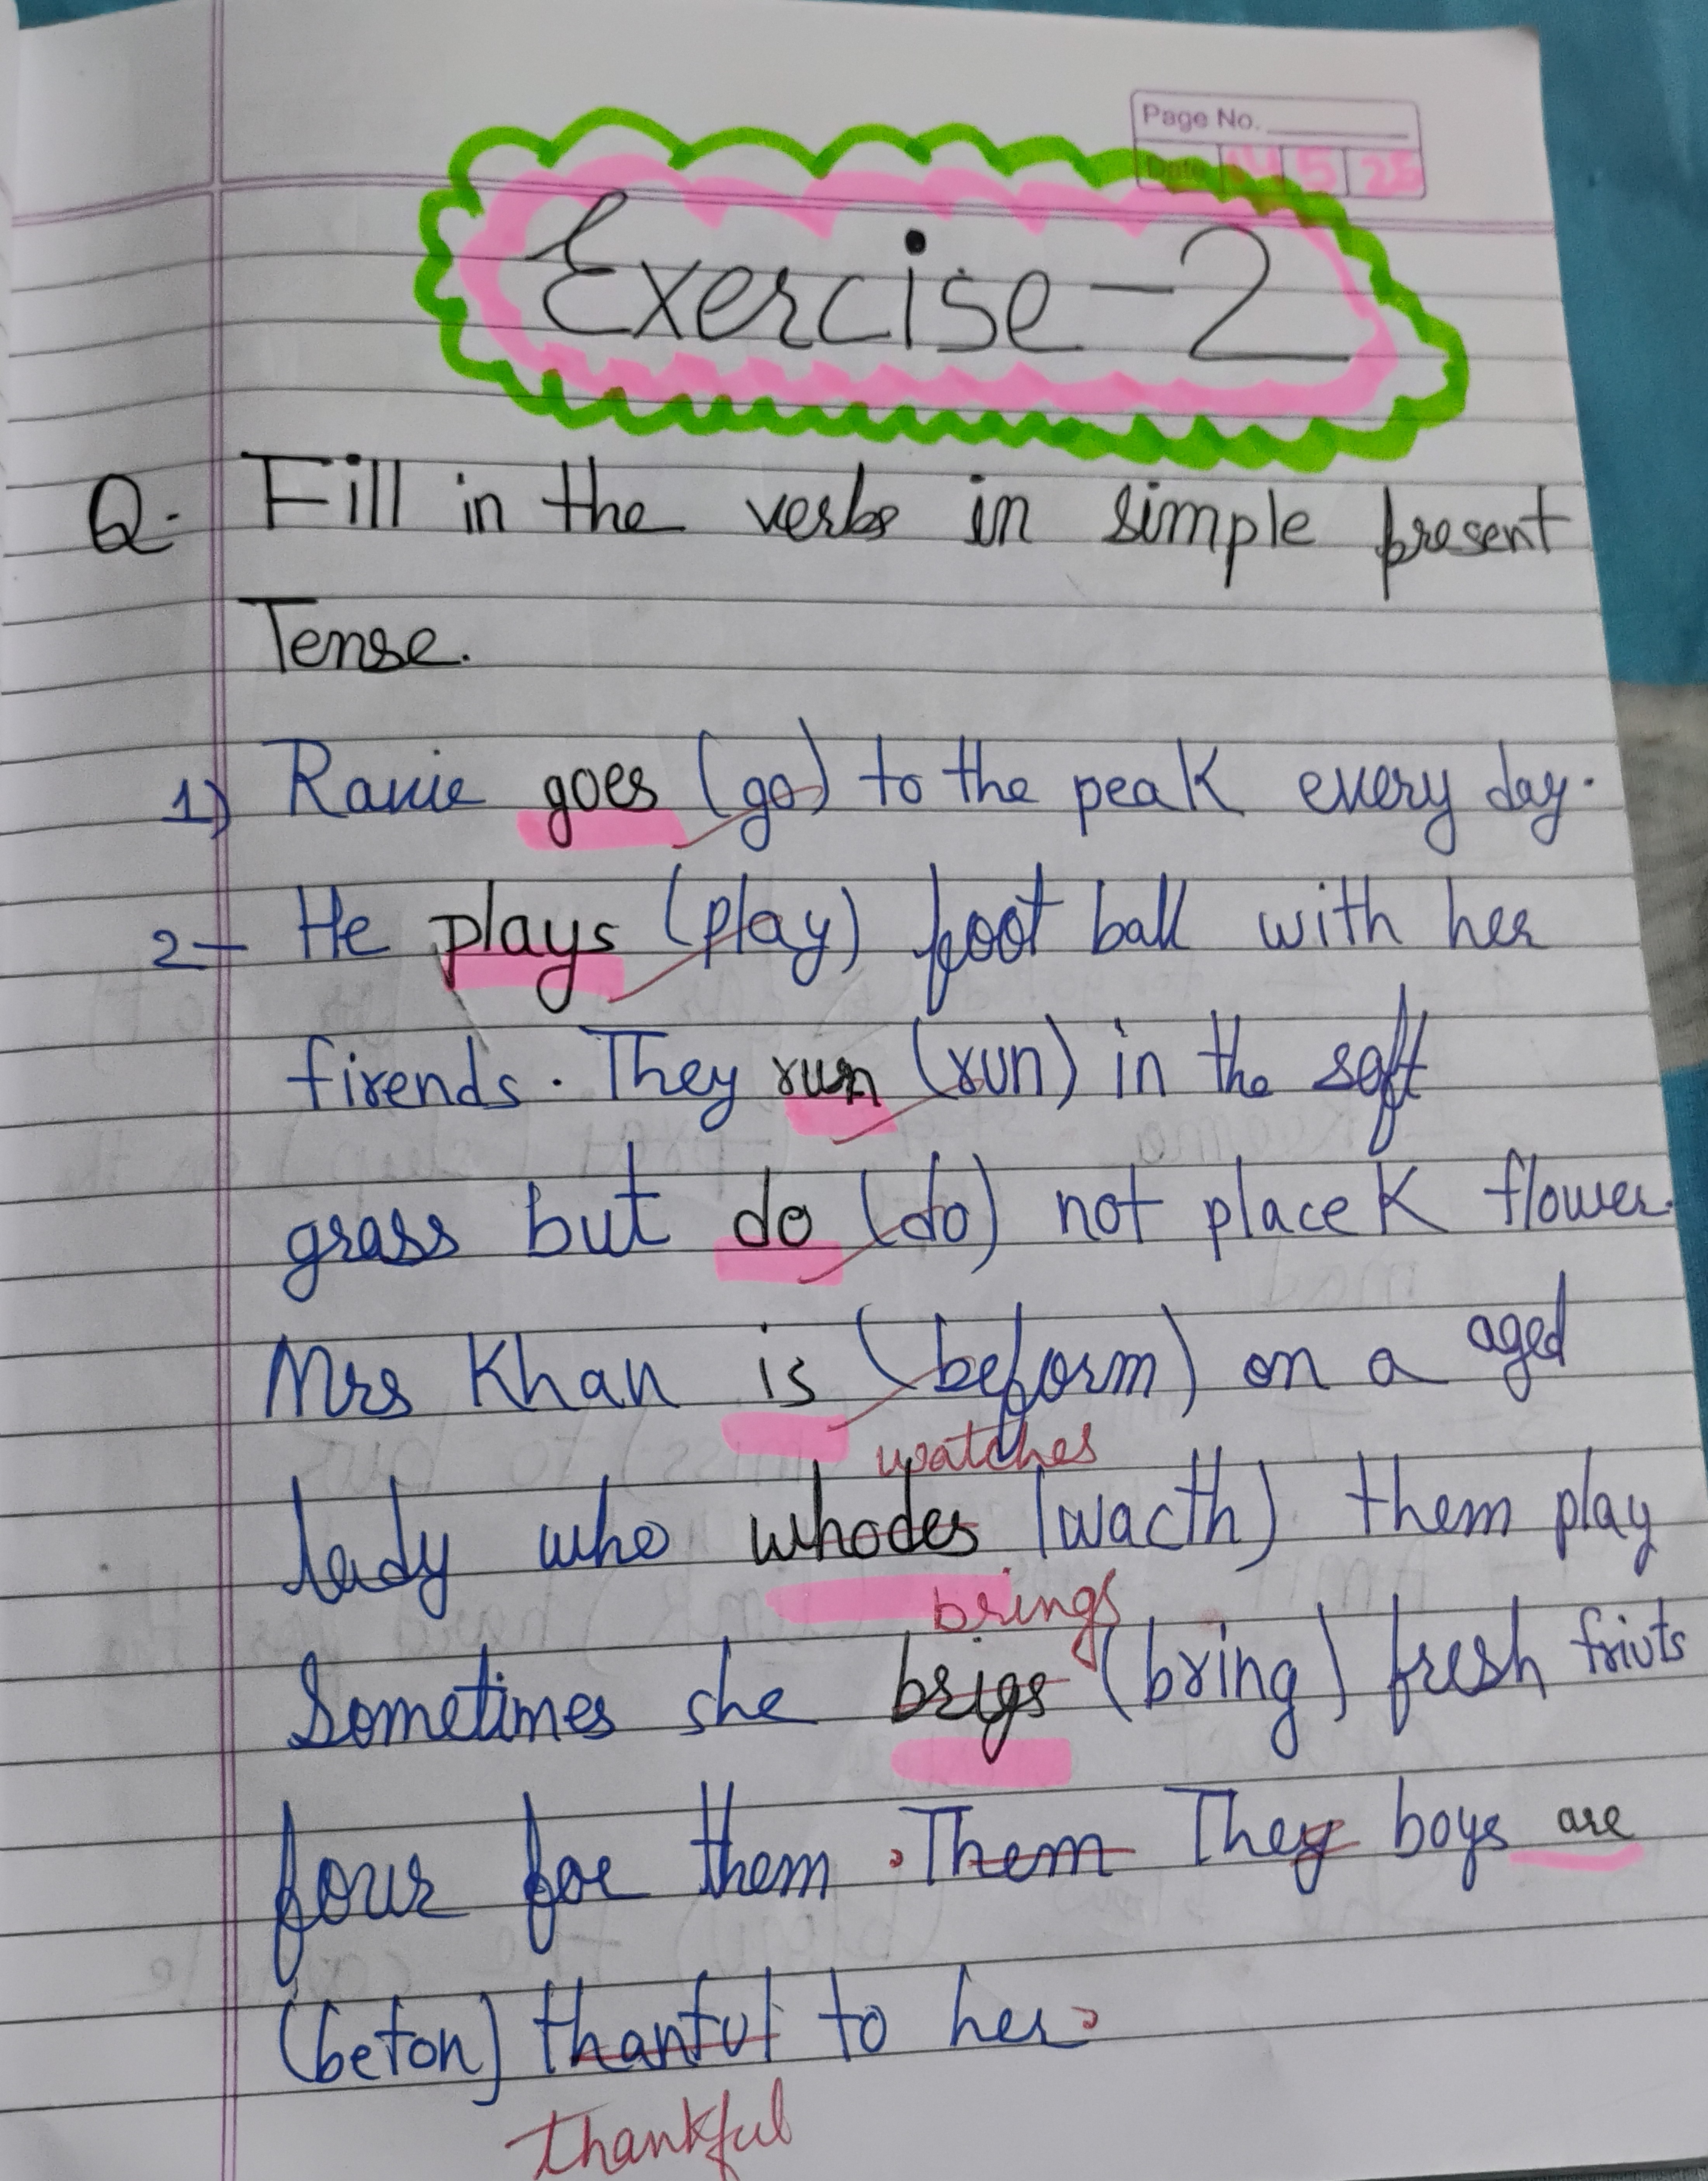 Page No.
Date 14 5 25
Exercise-2
Q. Fill in the verbs in simple present
Tense.
1) Ravie goes (go) to the peak every day.
2- He plays (play) foot ball with her
firends. They run (run) in the soft
grass but do (do) not place K flower.
Mrs Khan is (beform) on a aged
watches
lady who whodes (wacth) them play
brings
Sometimes she brigs (bring) fresh friuts
four foe them. Them They boys are
(beton) thanful to her.
thankful